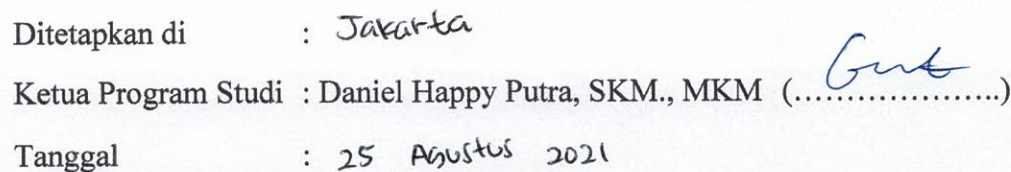 Ditetapkan di : Jakarta
Ketua Program Studi : Daniel Happy Putra, SKM., MKM (....................)
Tanggal : 25 Agustus 2021